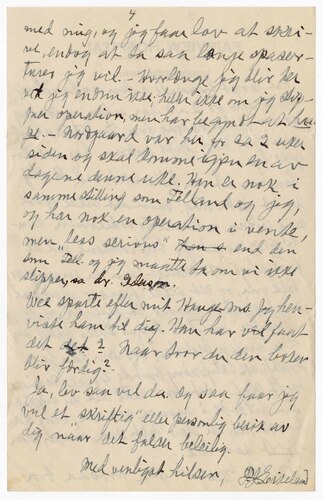 4
med mig, og jeg faar lov at skri-
ve, endog at ta saa lange spaser-
turer jeg vil — Hvorlænge jeg blir her
vet jeg endnu ikke, heller ikke om jeg slip-
per operation, men har begyndt at
— Nordgaard var her for ca 2 uker
siden og skal komme igjen en av
dagene denne uke. Han er nok i
samme stilling som Felland og jeg,
og har nok en operation i vente,
men "less serious" end den
som Fell. og jeg maatte ta om vi ikke
slipper, sa dr.
Wee spurte efter mit ms. Jeg hen-
viste ham til dig. Han har vel faaet
det ? Naar tror du den boken
blir færdig?
Ja, lev saa vel du. og saa faar jeg
vel et "skriftlig" eller personlig besøk av
dig naar det falder beleilig.
Med venligst hilsen,